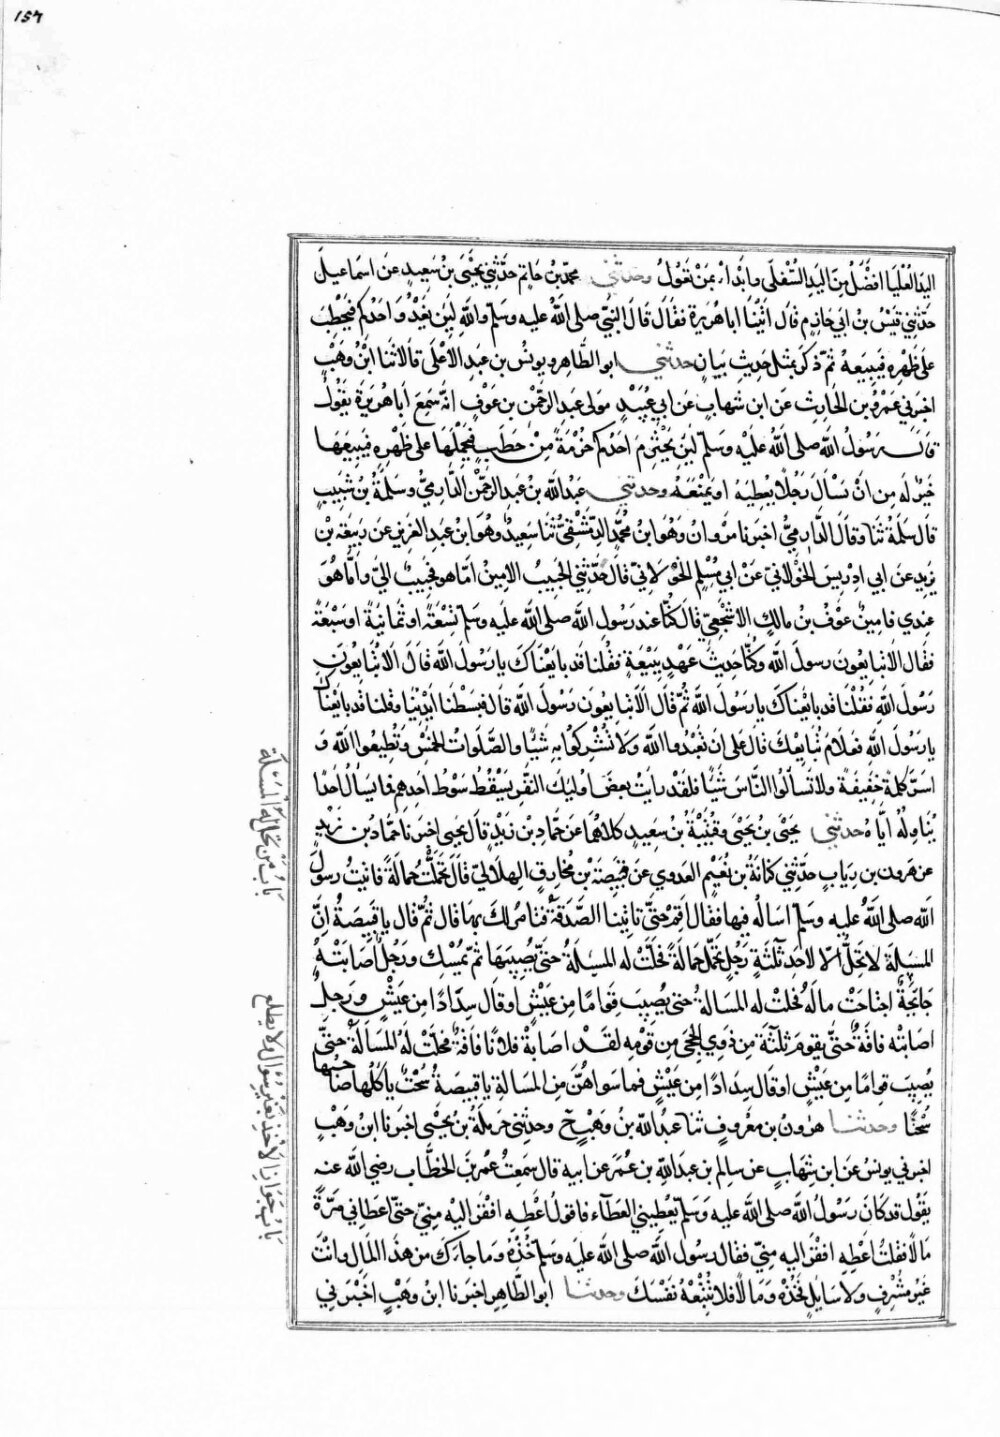 ١٥٣
اليد العليا افضل من اليد السفلى وابدأ بمن تعول وحدثني محمد بن حاتم حدثني يحيى بن سعيد عن اسماعيل
حدثني قيس بن ابي حازم قال اتينا ابا هريرة فقال قال النبي صلى الله عليه وسلم والله لين يغدو احدكم فيحطب
على ظهره فيبيعه ثم ذكر بمثل حديث بيان حدثني ابو الطاهر ويونس بن عبد الاعلى قالا ثنا ابن وهب
اخبرني عمرو بن الحارث عن ابن شهاب عن ابي عبيد مولى عبد الرحمن بن عوف انه سمع ابا هريرة يقول
قال رسول الله صلى الله عليه وسلم لين يحتزم احدكم حزمة من حطب فيحملها على ظهره فيبيعها
خير له من ان يسال رجلا يعطيه او يمنعه وحدثني عبد الله بن عبد الرحمن الدارمي وسلمة بن شبيب
قال سلمة ثنا وقال الدارمي اخبرنا مروان وهو ابن محمد الدمشقي ثنا سعيد وهو ابن عبد العزيز عن ربيعة بن
يزيد عن ابي ادريس الخولاني عن ابي مسلم الخولاني قال حدثني الحبيب الامين اما هو فحبيب الي واما هو
عندي فامين عوف بن مالك الاشجعي قال كنا عند رسول الله صلى الله عليه وسلم تسعة او ثمانية او سبعة
فقال الا تبايعون رسول الله وكنا حديث عهد ببيعة فقلنا قد بايعناك يا رسول الله قال الا تبايعون
رسول الله فقلنا قد بايعناك يا رسول الله ثم قال الا تبايعون رسول الله قال فبسطنا ايدينا وقلنا قد بايعناك
يا رسول الله فعلام نبايعك قال على ان تعبدوا الله ولا تشركوا به شيا والصلوات الخمس وتطيعوا الله و
اسر كلمة خفيفة ولا تسالوا الناس شيا فلقد رايت بعض اوليك النفر يسقط سوط احدهم فما يسال احدا
يناوله اياه حدثني يحيى بن يحيى وقتيبة بن سعيد كلاهما عن حماد بن زيد قال يحيى اخبرنا حماد بن زيد
عن هرون بن رياب حدثني كنانة بن نعيم العدوي عن قبيصة بن مخارق الهلالي قال تحملت حمالة فاتيت رسول
الله صلى الله عليه وسلم اساله فيها فقال اقم حتى تاتينا الصدقة فنامر لك بها قال ثم قال يا قبيصة ان
المسلة لا تحل الا لاحد ثلثة رجل تحمل حمالة فحلت له المسلة حتى يصيبها ثم يمسك ورجل اصابته
جايحة اجتاحت ماله فحلت له المسالة حتى يصيب قواما من عيش او قال سدادا من عيش ورجل
اصابته فاقة حتى يقوم ثلثة من ذوي الحجى من قومه لقد اصابة فلانا فاقة فحلت له المسالة حتى
يصيب قواما من عيش او قال سدادا من عيش فما سواهن من المسالة يا قبيصة سحت ياكلها صاحبها
سحتا وحدثنا هرون بن معروف ثنا عبد الله بن وهب ح وحدثني حرملة بن يحيى اخبرنا ابن وهب
اخبرني يونس عن ابن شهاب عن سالم بن عبد الله بن عمر عن ابيه قال سمعت عمر بن الخطاب رضي الله عنه
يقول قد كان رسول الله صلى الله عليه وسلم يعطيني العطاء فاقول اعطه افقر اليه مني حتى اعطاني مرة
مالا فقلت اعطه افقر اليه مني فقال رسول الله صلى الله عليه وسلم خذه وما جاءك من هذا المال وانت
غير مشرف ولا سايل فخذه وما لا فلا تتبعه نفسك وحدثنا ابو الطاهر اخبرنا ابن وهب اخبرني
باب من تحل له المسئلة
باب جواز الاخذ بغير سؤال ولا يطلع